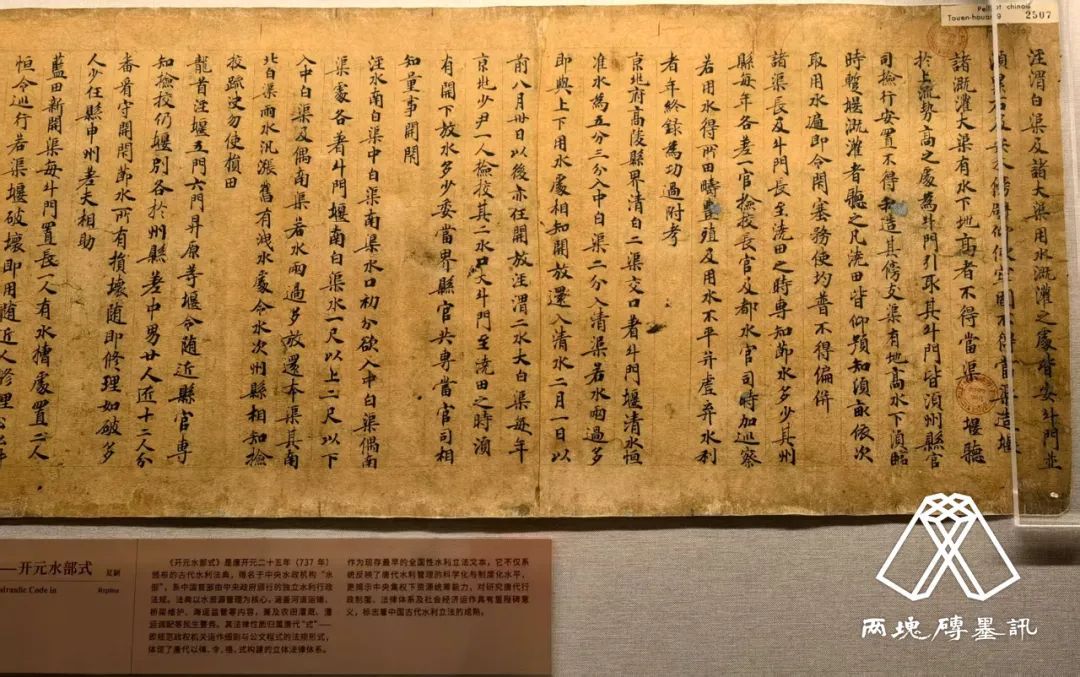 涇渭白渠及諸大渠用水溉灌之處皆安斗門並
須累石及安木傍壁仰使牢固不得當渠造堰
諸溉灌大渠有水下地高者不得當渠堰聽
於上流勢高之處為斗門引取其斗門皆須州縣官
司檢行安置不得私造其傍支渠有地高水下須臨
時暫堰溉灌者聽之凡澆田皆仰預知頃畝依次
取用水遍即令閉塞務使均普不得偏併
諸渠長及斗門長至澆田之時專知節水多少其州
縣每年各差一官檢校長官及都水官司時加巡察
若用水得所田疇豐殖及用水不平并虛棄水利
者年終錄為功過附考
京兆府高陵縣界清白二渠交口著斗門堰清水恒
准水為五分三分入中白渠二分入清渠若水雨過多
即與上下用水處相知開放還入清水二月一日以
前八月卅日以後亦任開放涇渭二水大白渠每年
京兆少尹一人檢校其二水口大斗門至澆田之時須
有開下放水多少委當界縣官共專當官司相
知量事開閉
涇水南白渠中白渠南渠水口初分欲入中白渠偶南
渠處各著斗門堰南白渠水一尺以上二尺以下
入中白渠及偶南渠若水雨過多放還本渠其南
北白渠雨水汎漲舊有洩水處令水次州縣相知檢
校疏決勿使損田
龍首涇堰五門六門昇原等堰令隨近縣官專
知檢校仍堰別各於州縣差中男廿人匠十二人分
番看守開閉節水所有損壞隨即修理如破多
人少任縣申州差夫相助
藍田新開渠每斗門置長一人有水槽處置二人
恒令巡行若渠堰破壞即用隨近人修理公
Pelliot chinois
Touen-houang 2507
——开元水部式 复制
draulic Code in Replica
《开元水部式》是唐开元二十五年（737 年）
颁布的古代水利法典，得名于中央水政机构“水
部”，系中国首部由中央政府颁行的独立水利行政
法规。法典以水资源管理为核心，涵盖河道运输、
桥梁维护、海运监管等内容，兼及农田灌溉、漕
运调配等民生要务。其法律性质归属唐代“式”——
即规范政权机关运作细则与公文程式的法规形式，
体现了唐代以律、令、格、式构建的立体法律体系。
作为现存最早的全国性水利立法文本，它不仅
系统反映了唐代水利管理的科学化与制度化水平，
更揭示中央集权下资源统筹能力，对研究唐代行
政制度、法律体系及社会经济运作具有里程碑意
义，标志着中国古代水利立法的成熟。
两塊磚墨訊